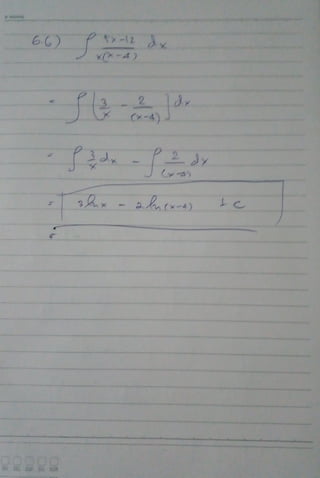 66) ∫ (x-12)/(x(x-4)) dx
= ∫ [3/x - 2/(x-4)] dx
= ∫ 3/x dx - ∫ 2/(x-4) dx
= 3lnx - 2ln(x-4) + c